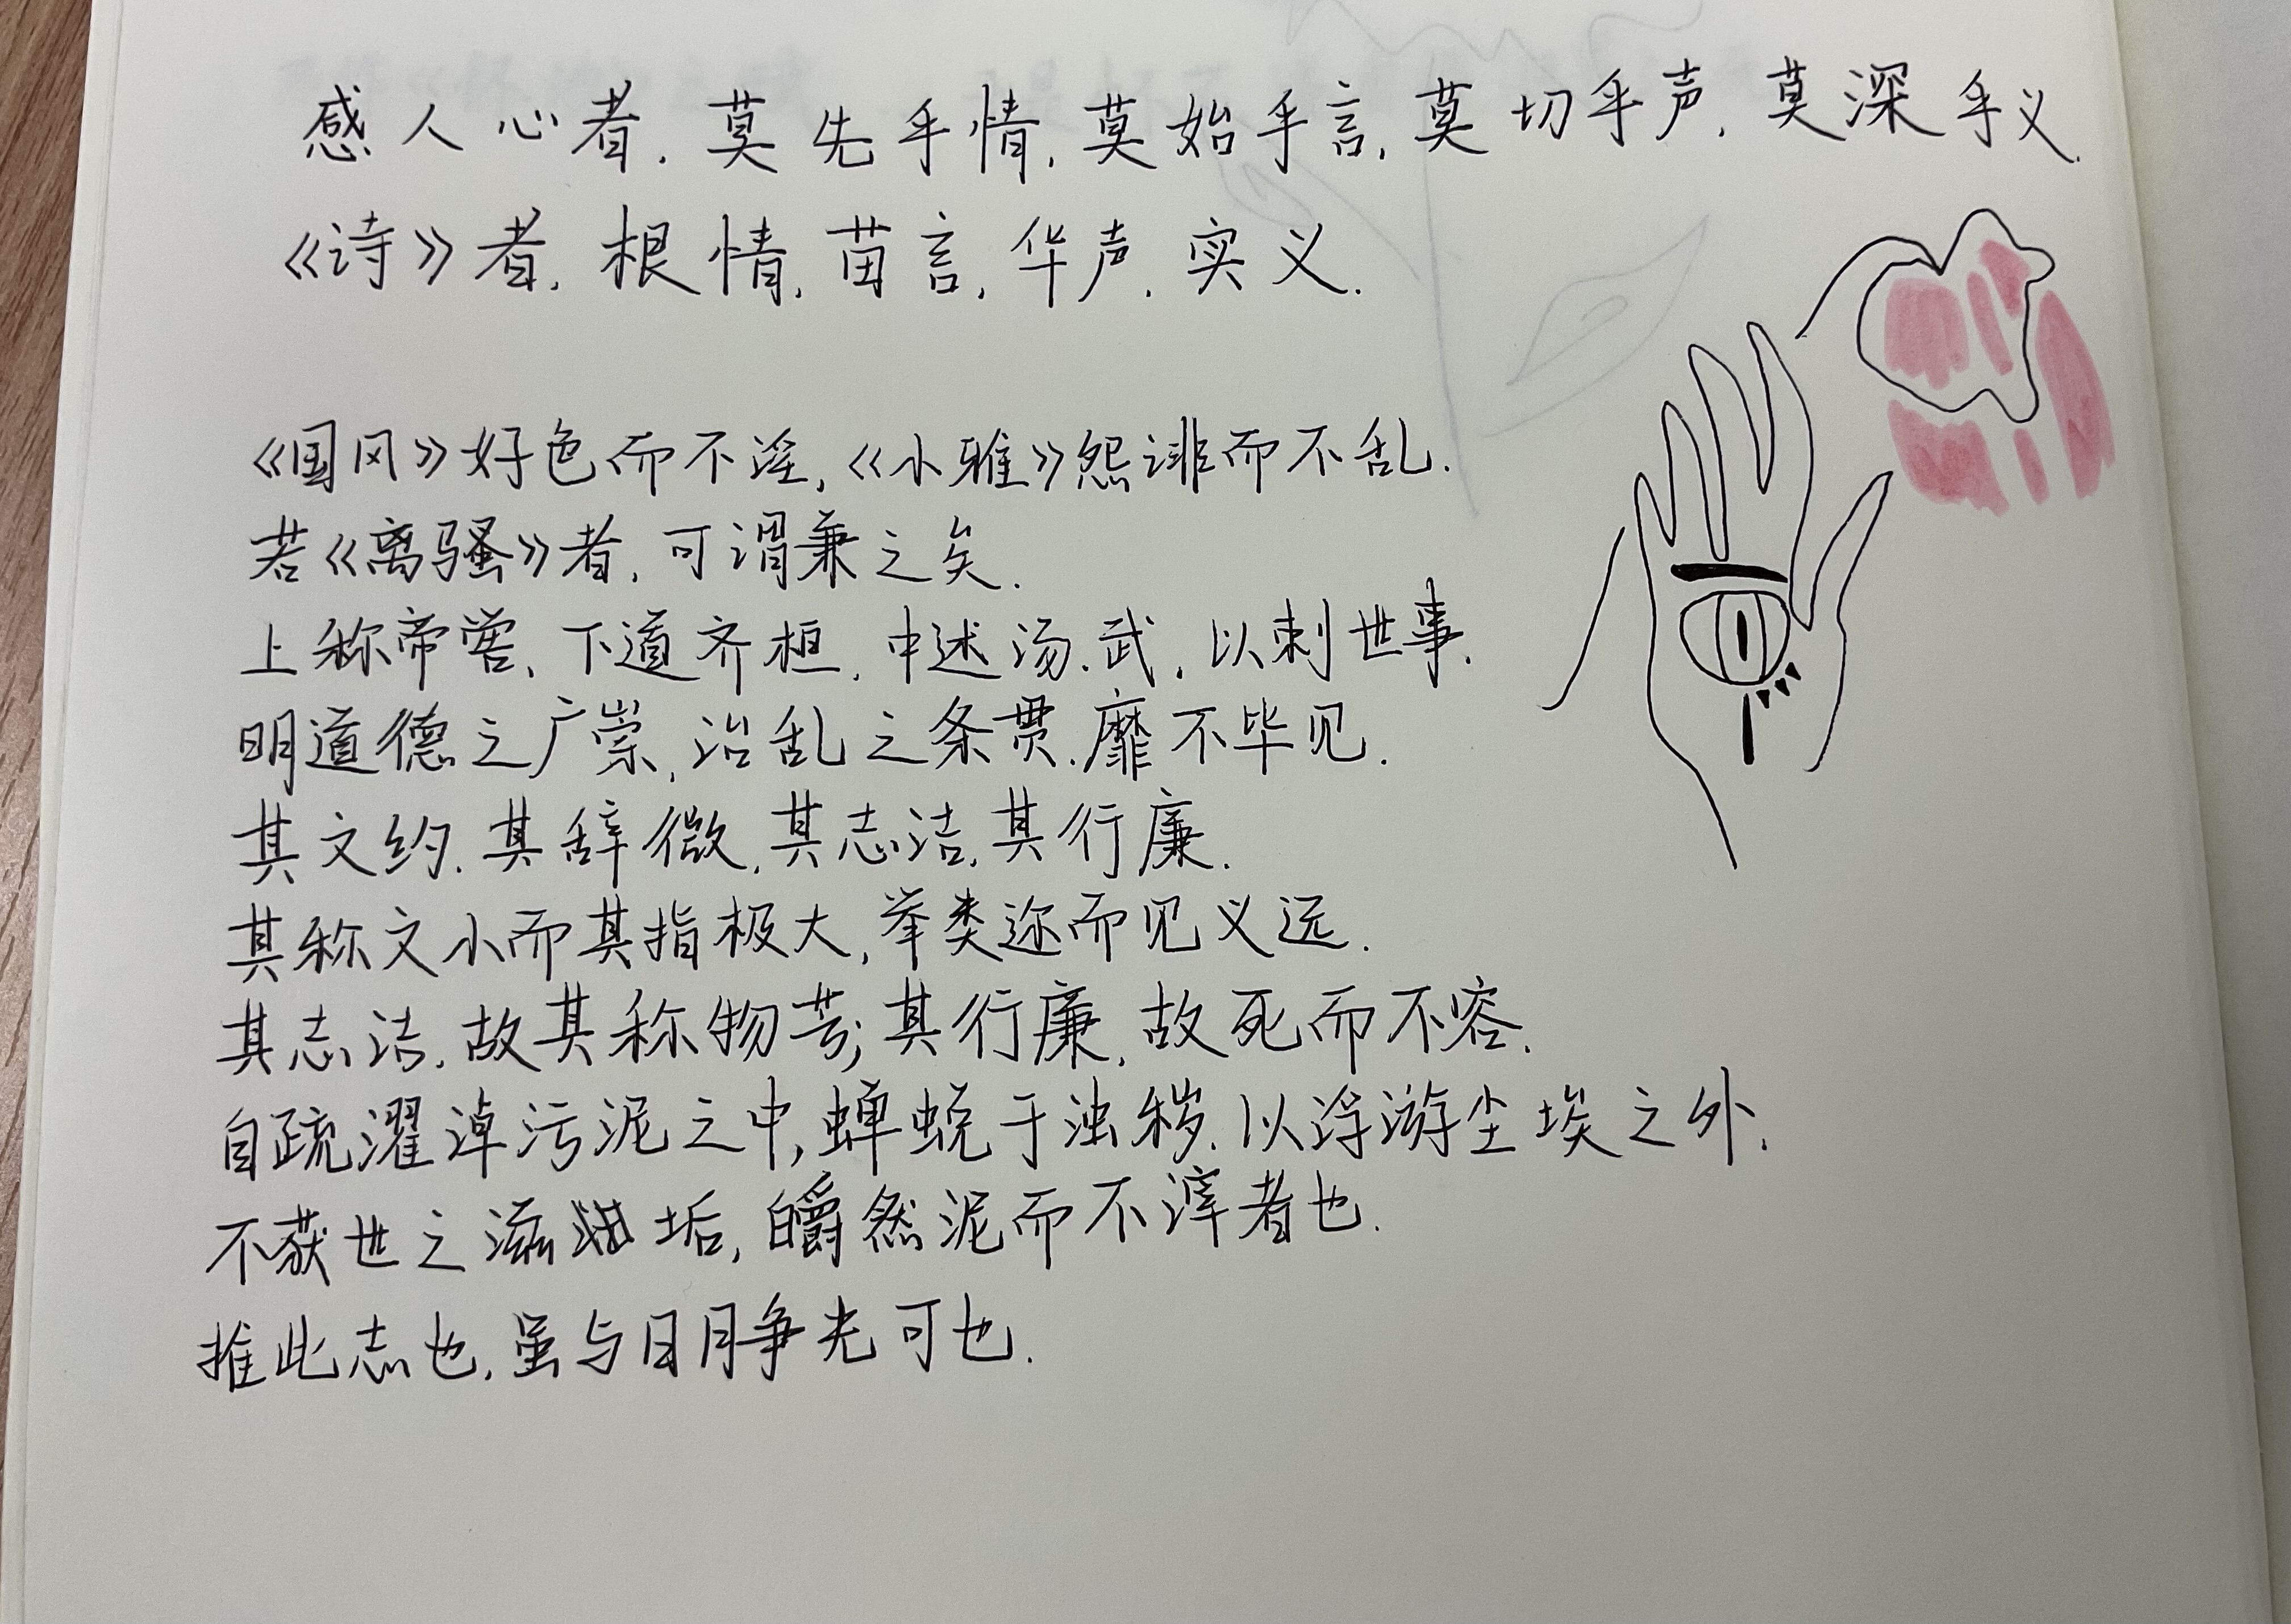 感人心者，莫先乎情，莫始乎言，莫切乎声，莫深乎义．
《诗》者，根情，苗言，华声，实义．
《国风》好色而不淫，《小雅》怨诽而不乱．
若《离骚》者，可谓兼之矣．
上称帝喾，下道齐桓，中述汤．武，以刺世事．
明道德之广崇，治乱之条贯，靡不毕见．
其文约，其辞微，其志洁，其行廉．
其称文小而其指极大，举类迩而见义远．
其志洁，故其称物芳；其行廉，故死而不容．
自疏濯淖污泥之中，蝉蜕于浊秽，以浮游尘埃之外，
不获世之滋垢，皭然泥而不滓者也．
推此志也，虽与日月争光可也．